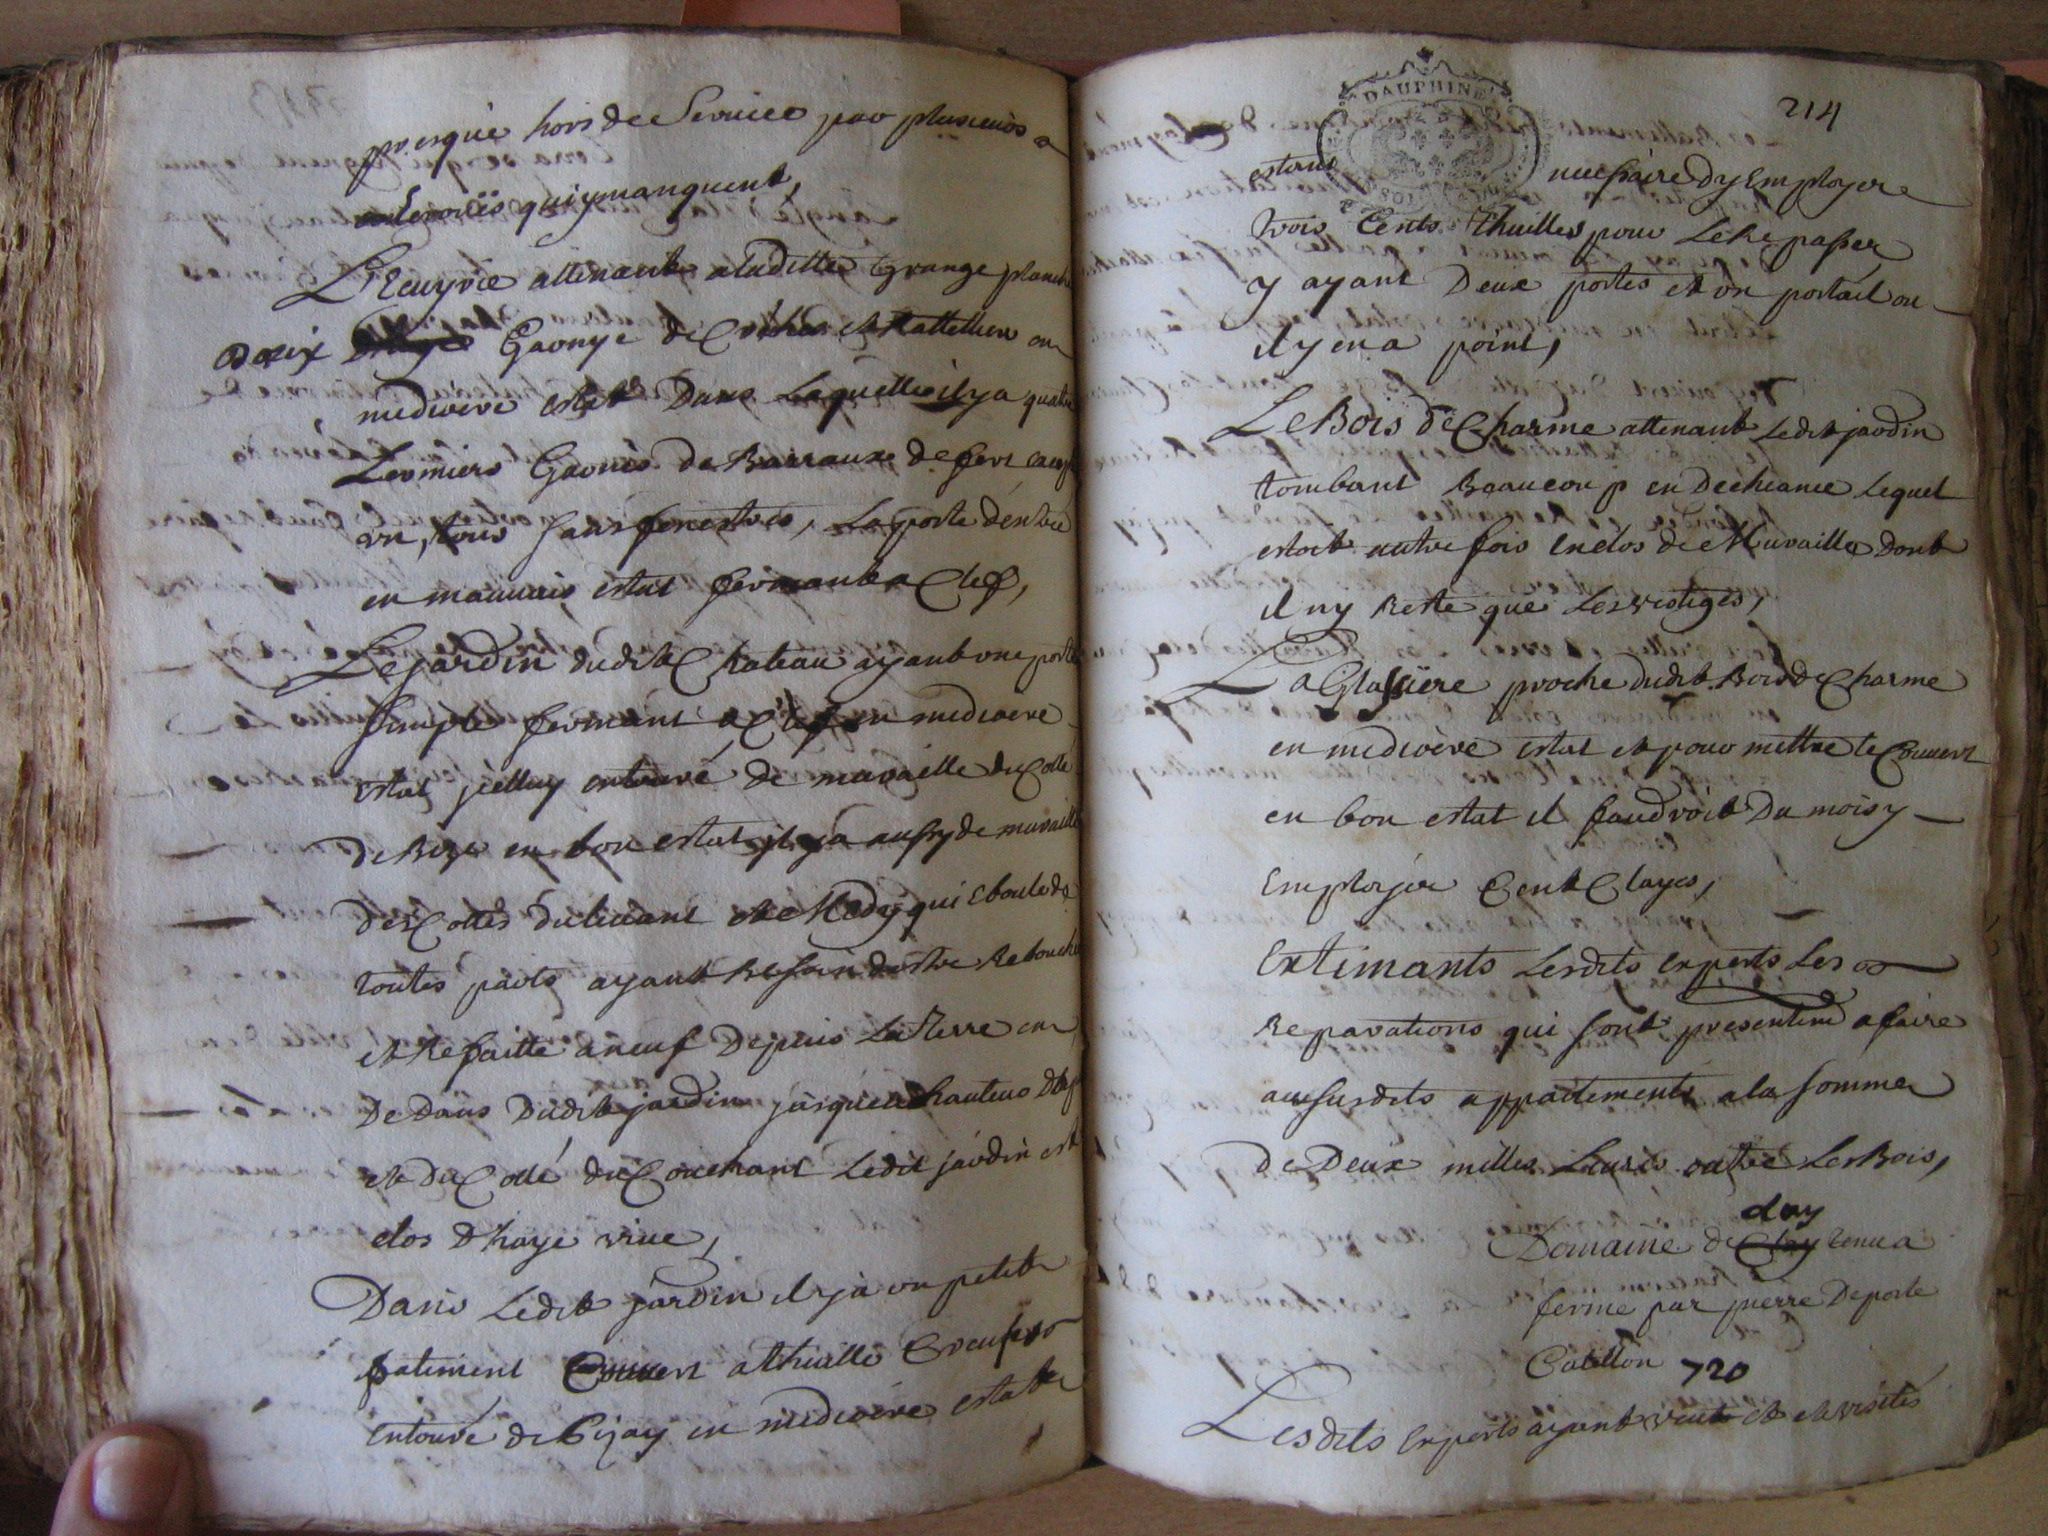 presque hors de Service par plusieurs
Scroües qui y manquent,
L'Ecuyrie attenante a laditte grange planch
aix Garnye de Crêche et Rattellier en
mediocre estat Dans Laquelle il y a quatre
Larmiers Garnis de Barraux de fert Chac
un, tous sans fenestres, La porte d'entrée
en mauvais estat fermant a Clef,
Le jardin dudit Chateau ayant une porte
simple fermant a Clef en mediocre
estat jcelluy entouré de muraille du Cotté
De Bize en bon estat jl y a aussy de muraille
des Cottés du leuant et Midy qui eboule de
toutes parts ayant Besoin destre Rebouch
et Refaitte a neuf Depuis La Terre en
Dedans Dudit jardin jusques a hauteur
et Du Cotté du Couchant Ledit jardin est
clos D'haye viue,
Dans Ledit jardin il y a un petit
batiment Couvert a thuille Creuse
Entouré de Pizay en mediocre estat
DAUPHINE
214
estant necessaire dy Employer
trois Cents Thuilles pour Le Repasser
y ayant Deux portes et un portail ou
il y en a point,
Le Bois de Charme attenant Ledit jardin
tombant Beaucoup en Decheance Lequel
estoit autre fois Enclos de Muraille Dont
il ny Reste que Les vestiges,
La Glassiere proche dudit Bois de Charme
en mediocre estat et pour mettre le Couvert
en bon estat il faudroit Du mois y
Employer Cent Clayes,
Extimants Lesdits Experts Les
Reparations qui sont presentem a faire
au susdits appartements a la somme
de Deux milles Liures outre Les Bois,
clay
Domaine de Clay tenu a
ferme par pierre Deporte
Catillon 720
Lesdits Experts ayant veut et et visités